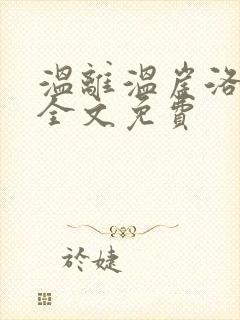 溫離溫崖洛
全文免費
於婕